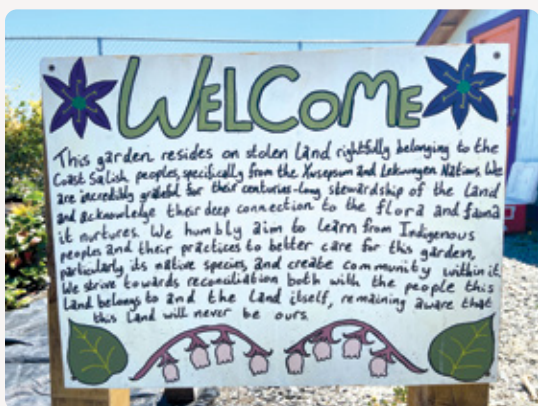 WELCOME
This garden resides on stolen land rightfully belonging to the
Coast Salish peoples, specifically from the Xwsepsum and Lekwungen Nations. We
are incredibly grateful for their centuries-long stewardship of the land
and acknowledge their deep connection to the flora and fauna
it nurtures. We humbly aim to learn from Indigenous
peoples and their practices to better care for this garden,
particularly its native species, and create community within it.
We strive towards reconciliation both with the people this
land belongs to and the land itself, remaining aware that
this land will never be ours.